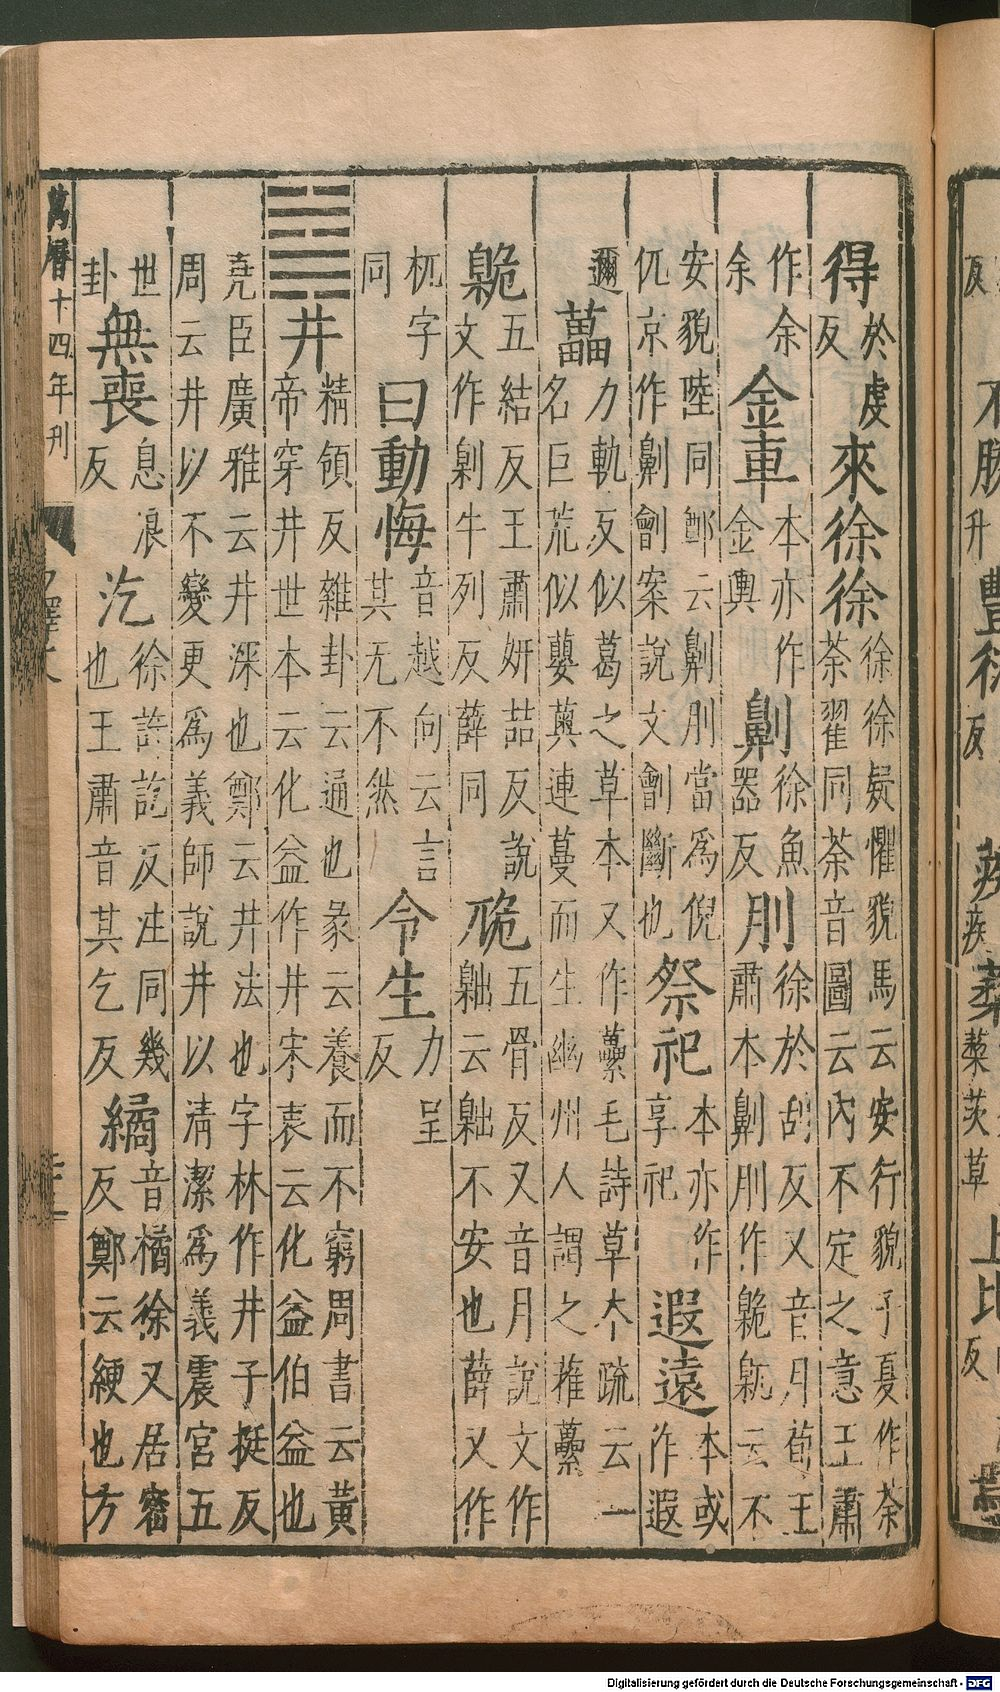 得於虔反來徐徐徐徐疑懼貌馬云安行貌子夏作荼荼翟同荼音圖云內不定之意王肅
作余余金車本亦作金輿劓徐魚器反刖徐於刮反又音月荀王肅本劓刖作臲云不
安貌陸同鄭云劓刖當爲倪㐳京作劓劊案說文劊斷也祭祀本亦作享祀遐遠本或作遐
邇藟力軌反似葛之草本又作虆毛詩草木疏云一名巨荒似蘡薁連蔓而生幽州人謂之蓷虆
臲五結反王肅妍喆反說文作劓牛列反薛同卼五骨反又音月說文作云不安也薛又作
杌字同曰動悔音越向云言其无不然令生力呈反
䷯井精領反雜卦云通也彖云養而不窮周書云黃帝穿井世本云化益作井宋衷云化益伯益也
堯臣廣雅云井深也鄭云井法也字林作井子挺反周云井以不變更爲義師說井以清潔爲義震宮五
世卦無喪息浪反汔徐許訖反注同幾也王肅音其乞反繘音橘徐又居密反鄭云綆也方
萬曆十四年刊